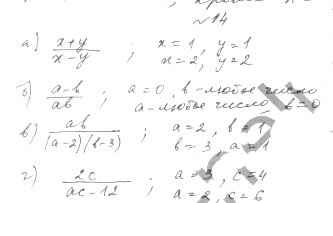 №14
а) x+y / x−y ; x = 1, y = 1
x = 2, y = 2
б) a−b / ab ; a = 0, b – любое число
a – любое число, b = 0
в) ab / (a−2)(b−3) ; a = 2, b = 1
b = 3, a = 1
г) 2c / ac−12 ; a = 3, c = 4
a = 2, c = 6